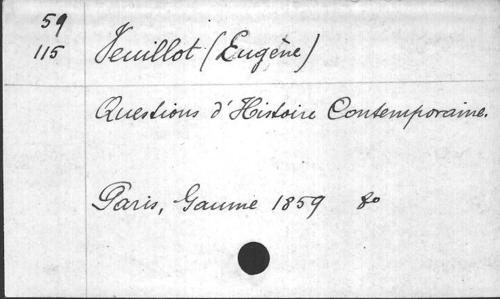 59
115
Veuillot (Eugène)
Questions d'Histoire Contemporaine.
Paris, Gaume 1859 8o